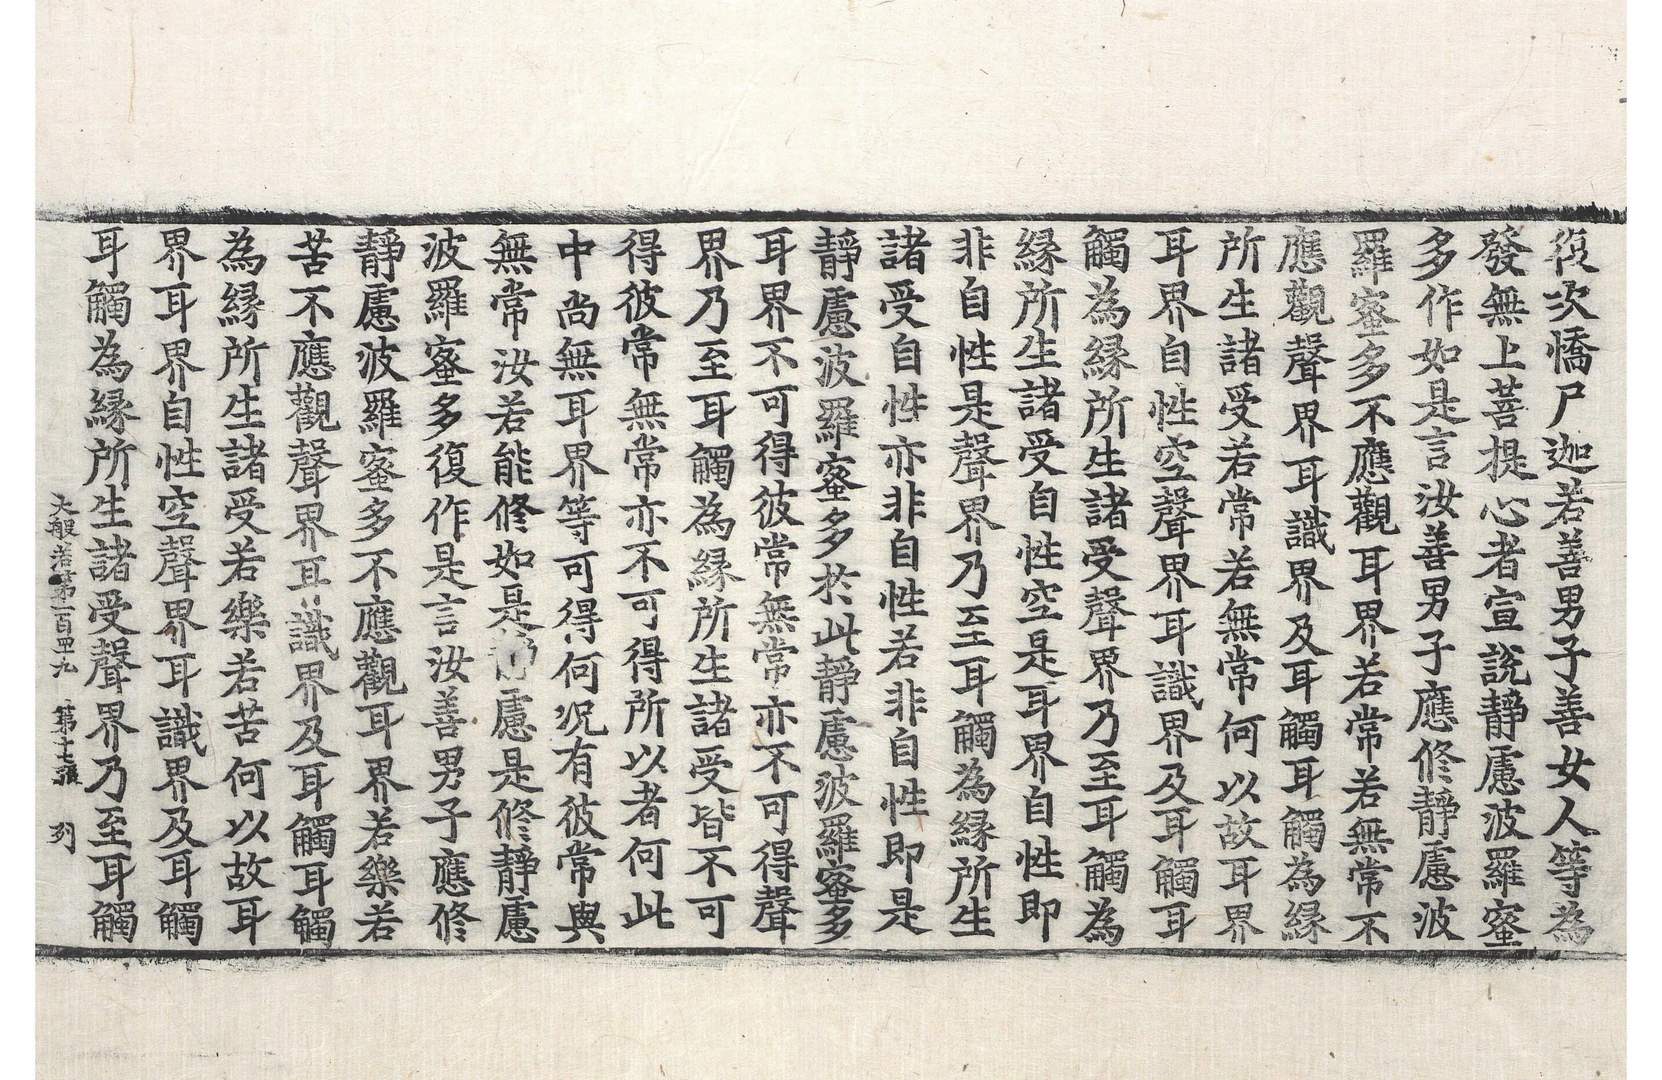 復次憍尸迦若善男子善女人等為
發無上菩提心者宣說靜慮波羅蜜
多作如是言汝善男子應修靜慮波
羅蜜多不應觀耳界若常若無常不
應觀聲界耳識界及耳觸耳觸為緣
所生諸受若常若無常何以故耳界
耳界自性空聲界耳識界及耳觸耳
觸為緣所生諸受聲界乃至耳觸為
緣所生諸受自性空是耳界自性即
非自性是聲界乃至耳觸為緣所生
諸受自性亦非自性若非自性即是
靜慮波羅蜜多於此靜慮波羅蜜多
耳界不可得彼常無常亦不可得聲
界乃至耳觸為緣所生諸受皆不可
得彼常無常亦不可得所以者何此
中尚無耳界等可得何況有彼常與
無常汝若能修如是靜慮是修靜慮
波羅蜜多復作是言汝善男子應修
靜慮波羅蜜多不應觀耳界若樂若
苦不應觀聲界耳識界及耳觸耳觸
為緣所生諸受若樂若苦何以故耳
界耳界自性空聲界耳識界及耳觸
耳觸為緣所生諸受聲界乃至耳觸
大般若第一百四九 第十七張 列